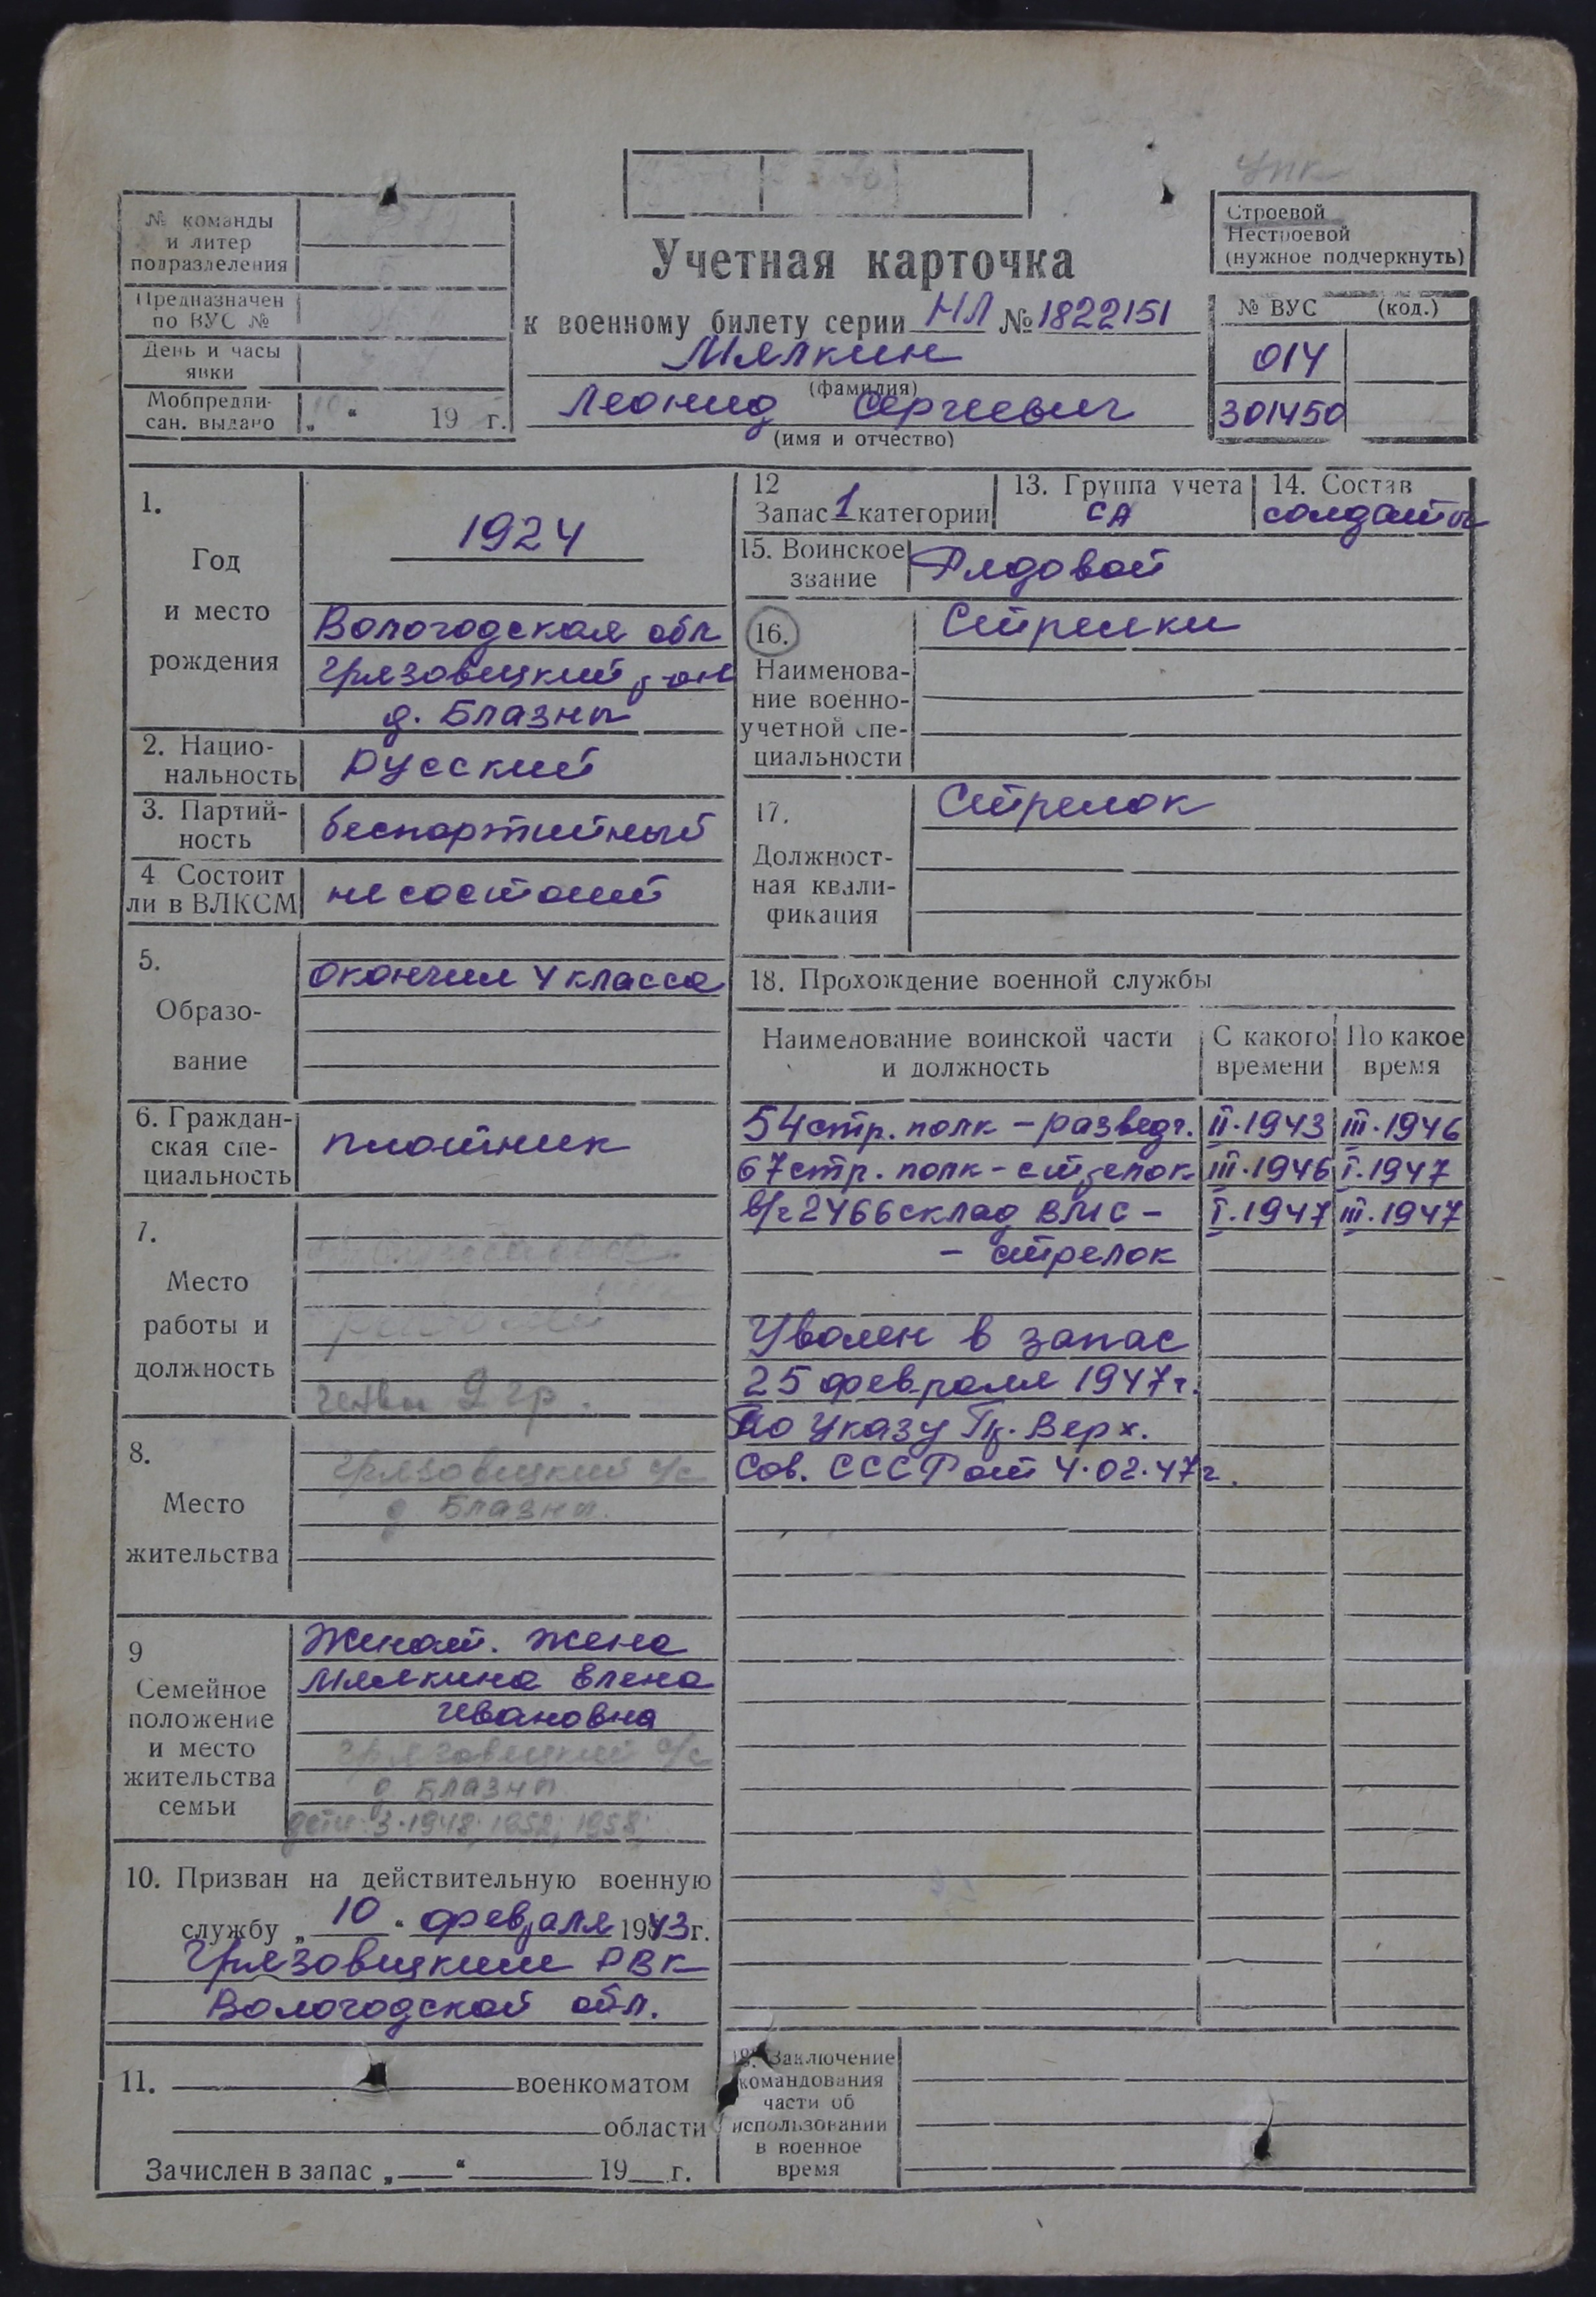 упк
№ команды
и литер
подразделения
Предназначен
по ВУС №
День и часы
явки
Мобпредпи-
сан. выдано
„ “ 19 г.
Учетная карточка
к военному билету серии НЛ № 1822151
Мялкин
(фамилия)
Леонид Сергеевич
(имя и отчество)
Строевой
Нестроевой
(нужное подчеркнуть)
№ ВУС (код.)
014
301450
1.
Год
и место
рождения
1924
Вологодская обл
Грязовецкий р-он
д. Блазны
2. Нацио-
нальность
Русский
3. Партий-
ность
беспартийный
4 Состоит
ли в ВЛКСМ
не состоит
5.
Образо-
вание
окончил 4 класса
6. Граждан-
ская спе-
циальность
плотник
7.
Место
работы и
должность
рабочий
2 гр.
8.
Место
жительства
Грязовецкий с/с
д Блазны.
9
Семейное
положение
и место
жительства
семьи
Женат. Жена
Мялкина Елена
Ивановна
Грязовецкий с/с
д Блазны
дети: 3-1948; 1952; 1958;
10. Призван на действительную военную
службу „ 10 “ февраля 1943 г.
Грязовецким РВК
Вологодской обл.
11. военкоматом
области
Зачислен в запас „ “ 19 г.
12
Запас 1 категории
13. Группа учета
СА
14. Состав
солдаты
15. Воинское
звание
Рядовой
16.
Наименова-
ние военно-
учетной спе-
циальности
Стрелки
17.
Должност-
ная квали-
фикация
Стрелок
18. Прохождение военной службы
Наименование воинской части
и должность
С какого
времени
По какое
время
54 стр. полк – разведч. II.1943 III.1946
67 стр. полк – стрелок III.1946 I.1947
в/ч 2466 склад ВМС – I.1947 III.1947
– стрелок
Уволен в запас
25 февраля 1947 г.
По Указу Пр. Верх.
Сов. СССР от 4.02.47 г.
19. Заключение
командования
части об
использовании
в военное
время